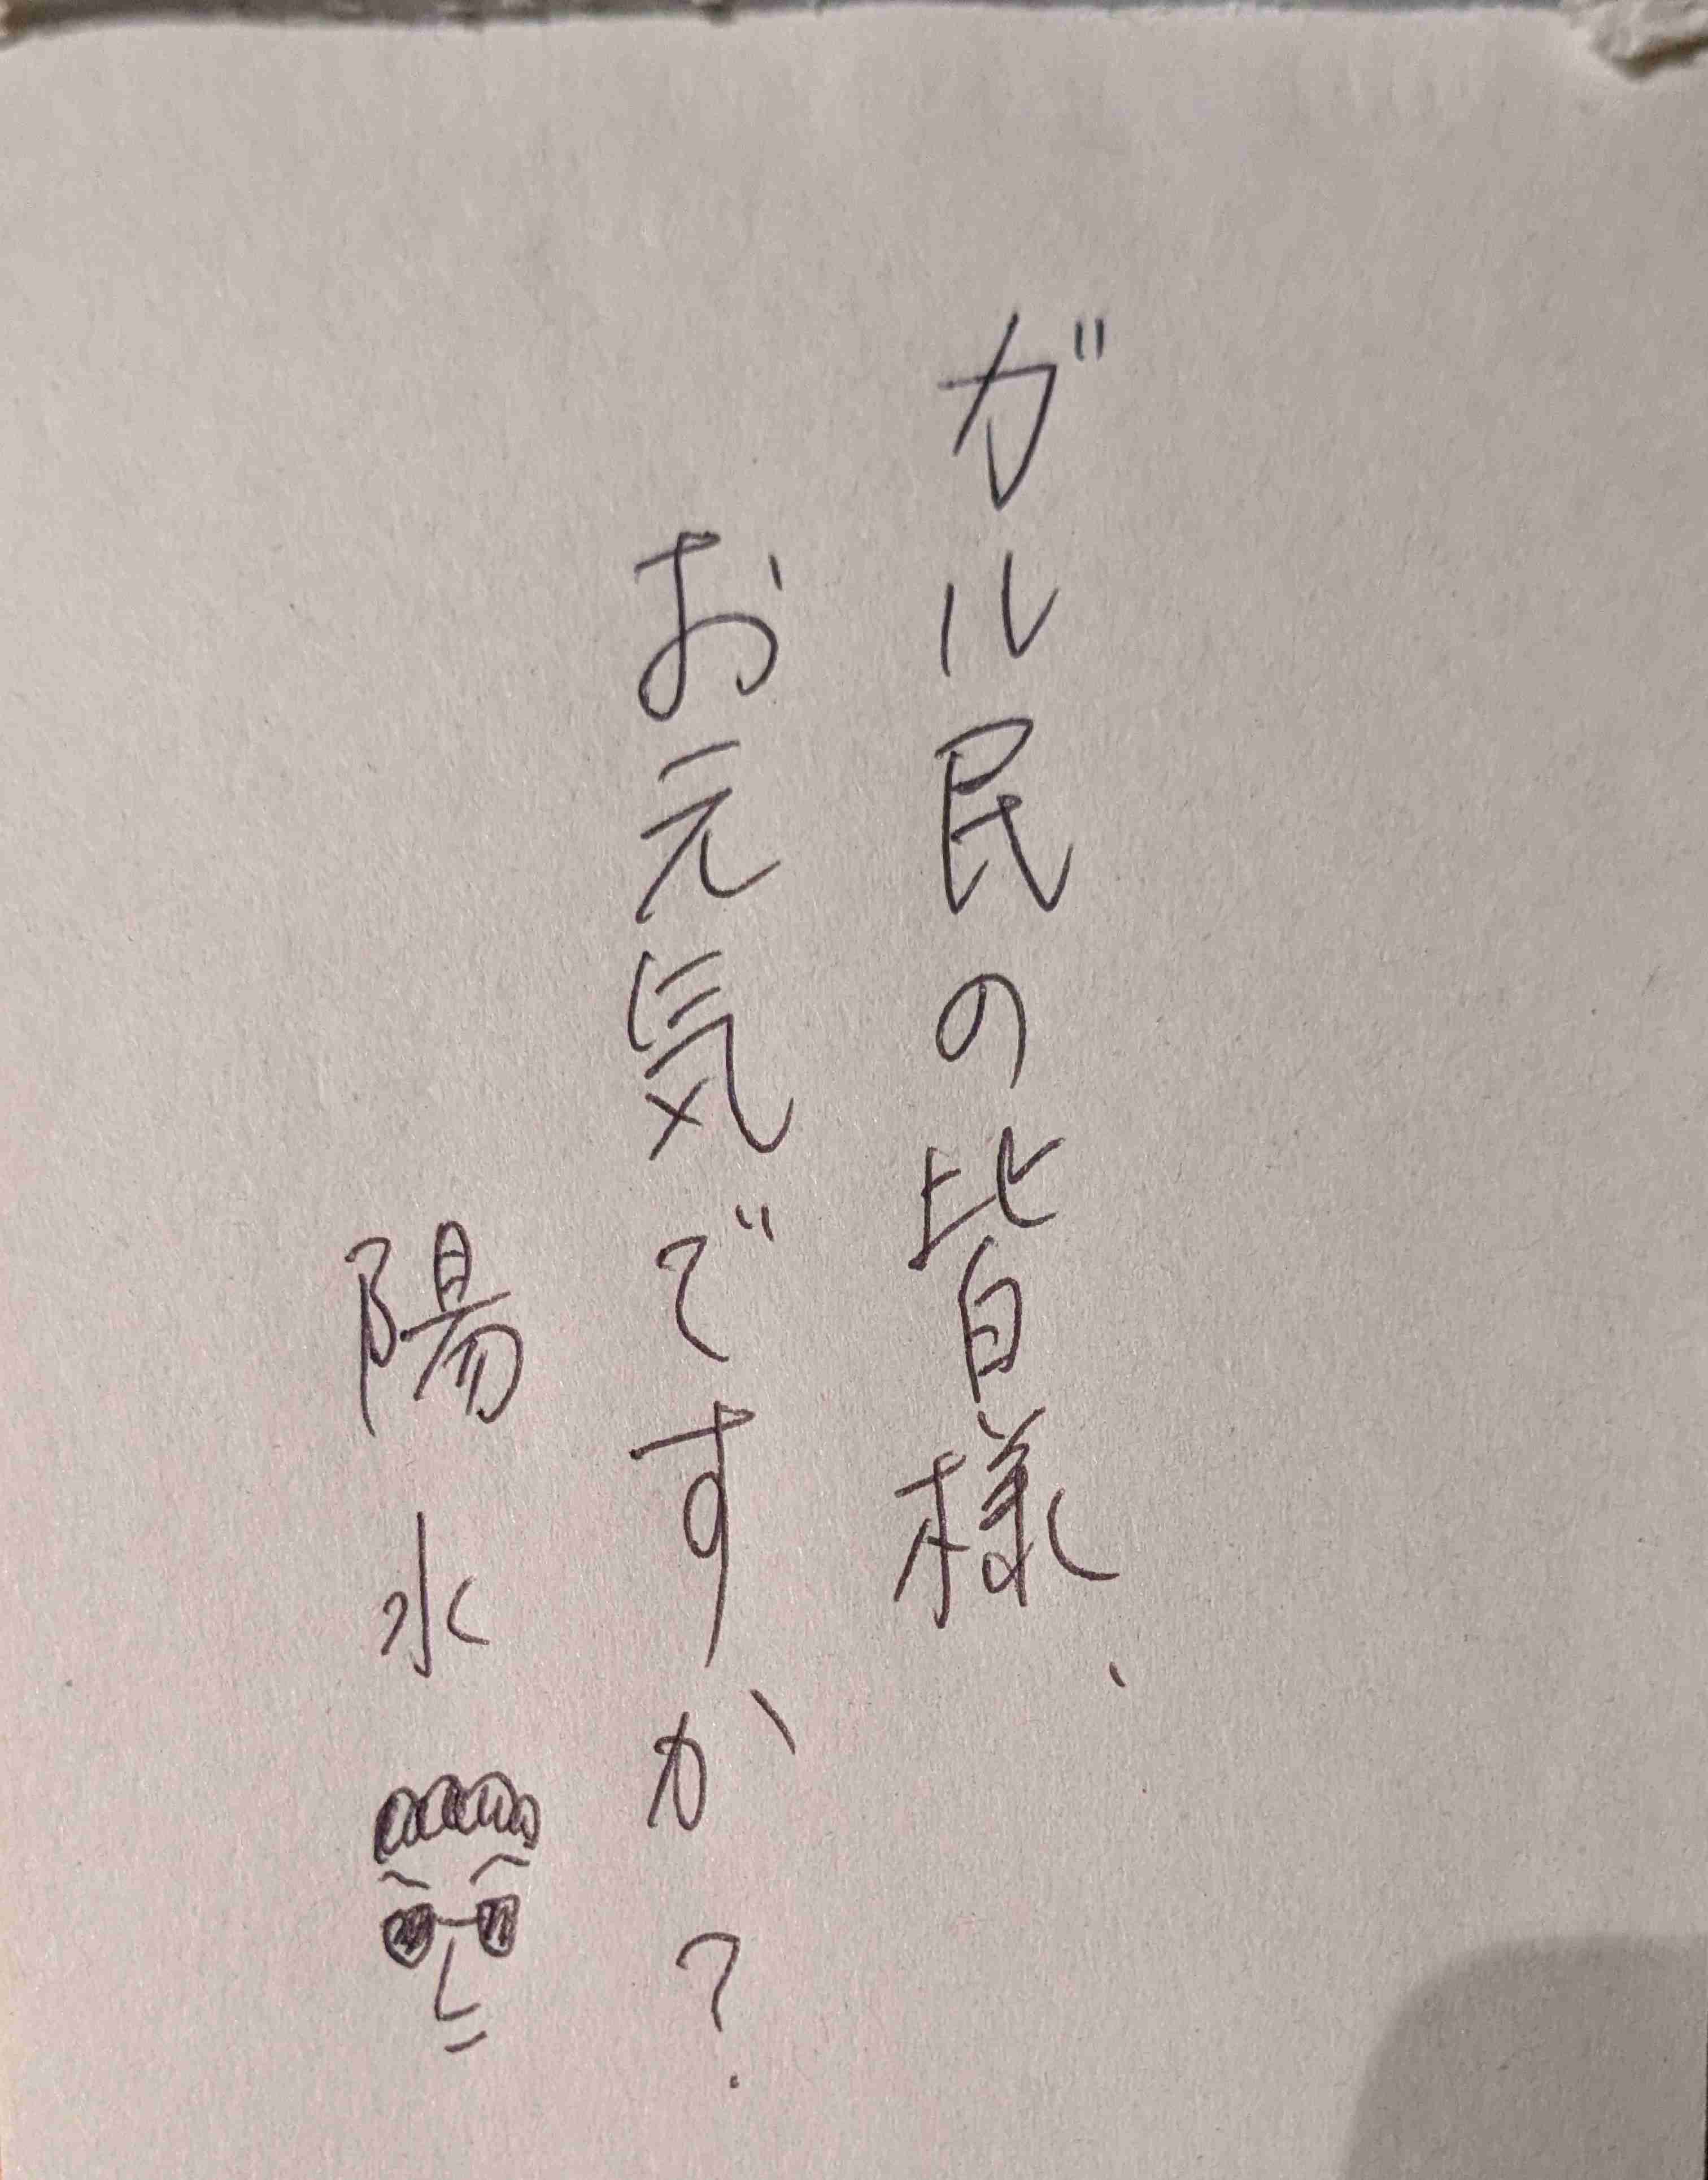 ガル民の皆様、
お元気ですか?
陽水